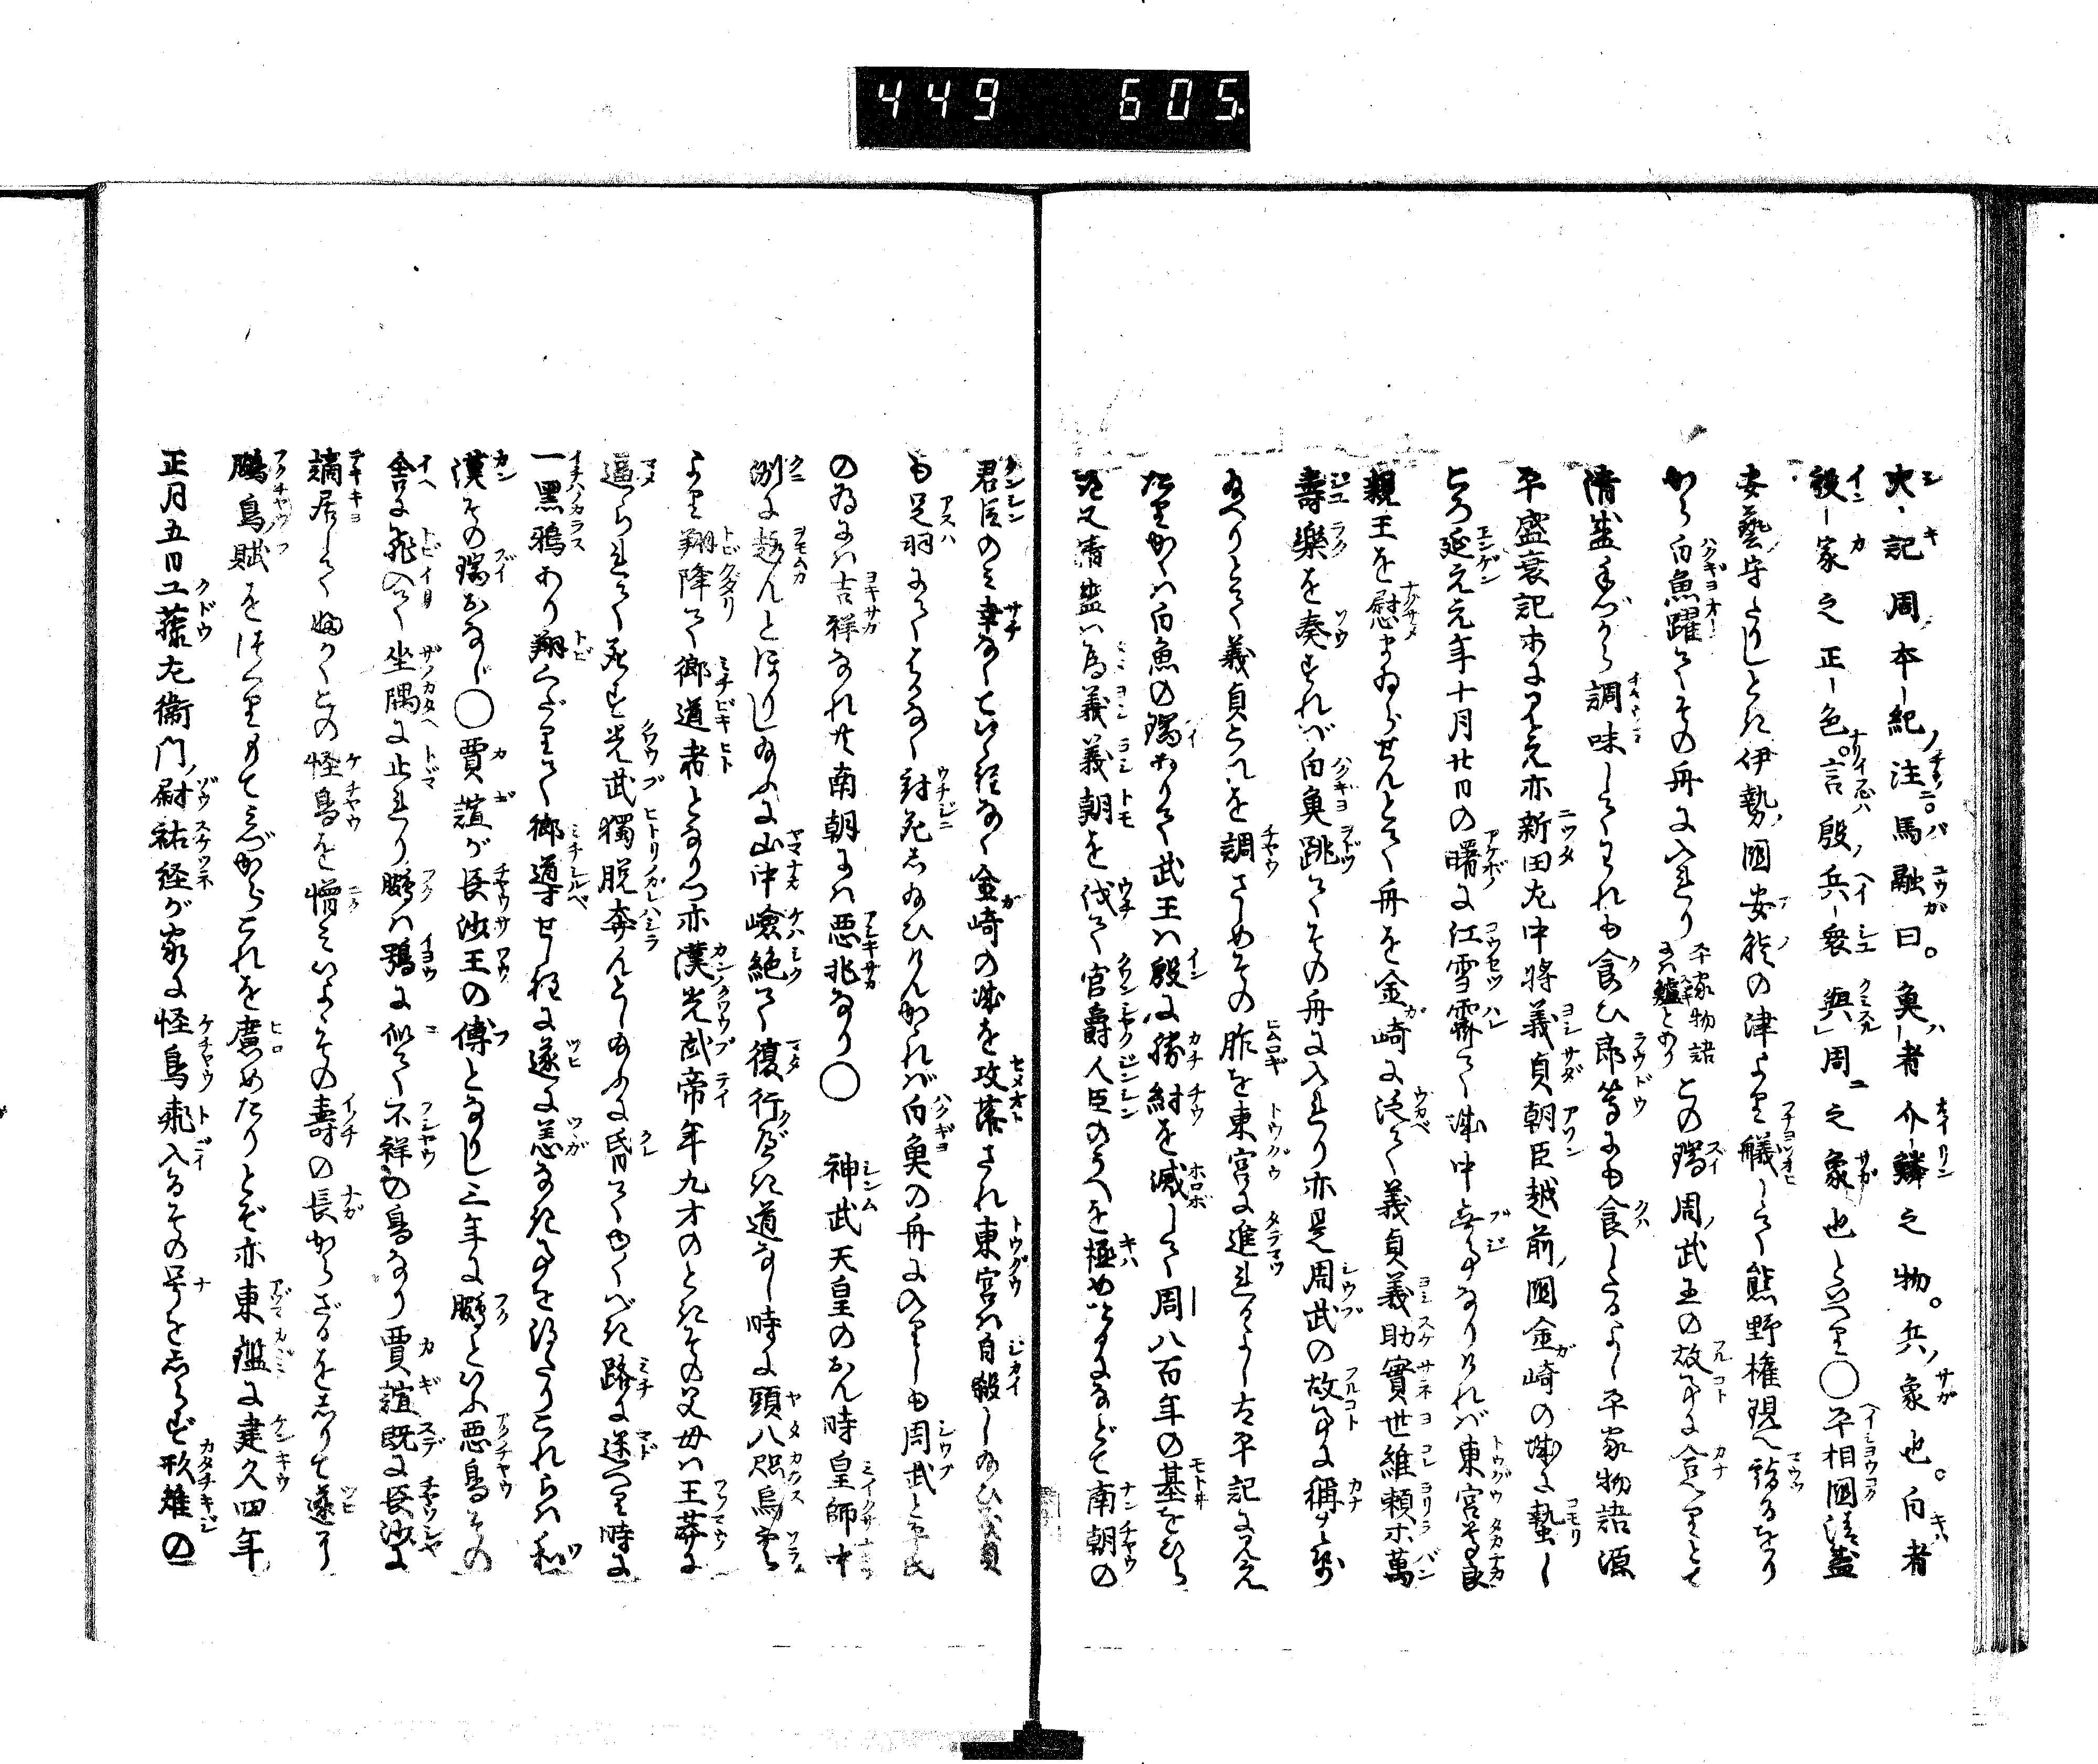 449 605
史記周本紀ノ注ニ馬融ガ曰。魚ハ者介鱗之物。兵ノ象也。白者
殷家之正色。言ハ殷ノ兵衆與ニ周之象也といへり○平相國清盛
安藝ノ守たりしとき伊勢ノ國安ノ能の津より艤して熊野權現へ詣るをり
から白魚躍てその舟に入れり 平家物語には鱸とあり この瑞周ノ武王の故事に合へりとて
清盛手づから調味してわれも食ひ郎等にも食したるよし平家物語源
平盛衰記等に見え亦新田左中將義貞朝臣越前ノ國金崎の城に蟄し
ころ延元元年十月廿日の曙に江雪霽て城中無事なりければ東宮尊良
親王を慰まゐらせんとて舟を金崎に泛て義貞義助實世維頼等萬
壽樂を奏すれば白魚跳てその舟に入れり亦是周武の故事に稱
給へりとて義貞これを調さめその胙を東宮に進れるよし太平記に見え
たりかゝれば白魚の瑞ありて武王は殷に勝紂を滅して周八百年の基をひら
き又清盛は為義義朝を伐て官爵人臣のうへを極めたるになどて南朝の
君臣のミ幸なしといへ程なく金崎の城を攻落され東宮は自殺し給ひ義貞
も足羽にてはかなく討死し給ひけんかゝれば白魚の舟に入りしも周武と平氏
のゐにハ吉祥なれ共南朝にハ悪兆なり○神武天皇のおん時皇師中
洲に趣んとほりし給ふに山中嶮絶て復行べき道なし時に頭八咫烏空
より翔降て郷道者となりつ亦漢光武帝年九才のときその父母ハ王莽に
逼られて死す光武獨脱奔んとし給ふに昏てゆくべき路に迷へり時に
一黒鴉あり翔くだりて郷導せし程に遂に恙なき事を得たりこれらハ和
漢その瑞おなじ○賈誼が長沙王の傅となりし三年に鵩といふ悪鳥その
舎に飛入て坐隅に止れり鵩ハ鴞に似て不祥の鳥なり賈誼既に長沙に
謫居して
鵩鳥ノ賦をつくりもてミづからこれを廣めたりとぞ亦東鑑に建久四年
正月五日工藤左衞門ノ尉祐経が家に怪鳥飛入るその号をしらず形雉の